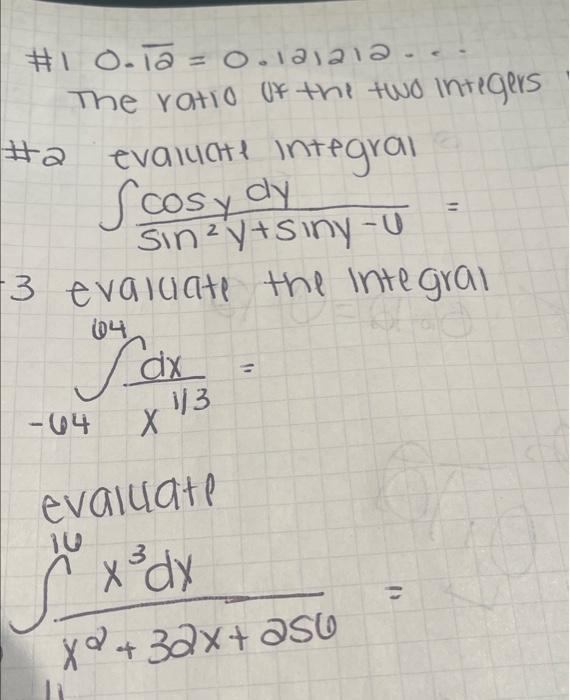 #1 0.1̅2̅ = 0.121212...
The ratio of the two integers
#2 evaluate integral
∫ cosy dy / sin²y + siny - 6 =
3 evaluate the integral
∫_{-64}^{64} dx / x^{1/3} =
evaluate
∫^{16} x³dx / x² + 32x + 256 =